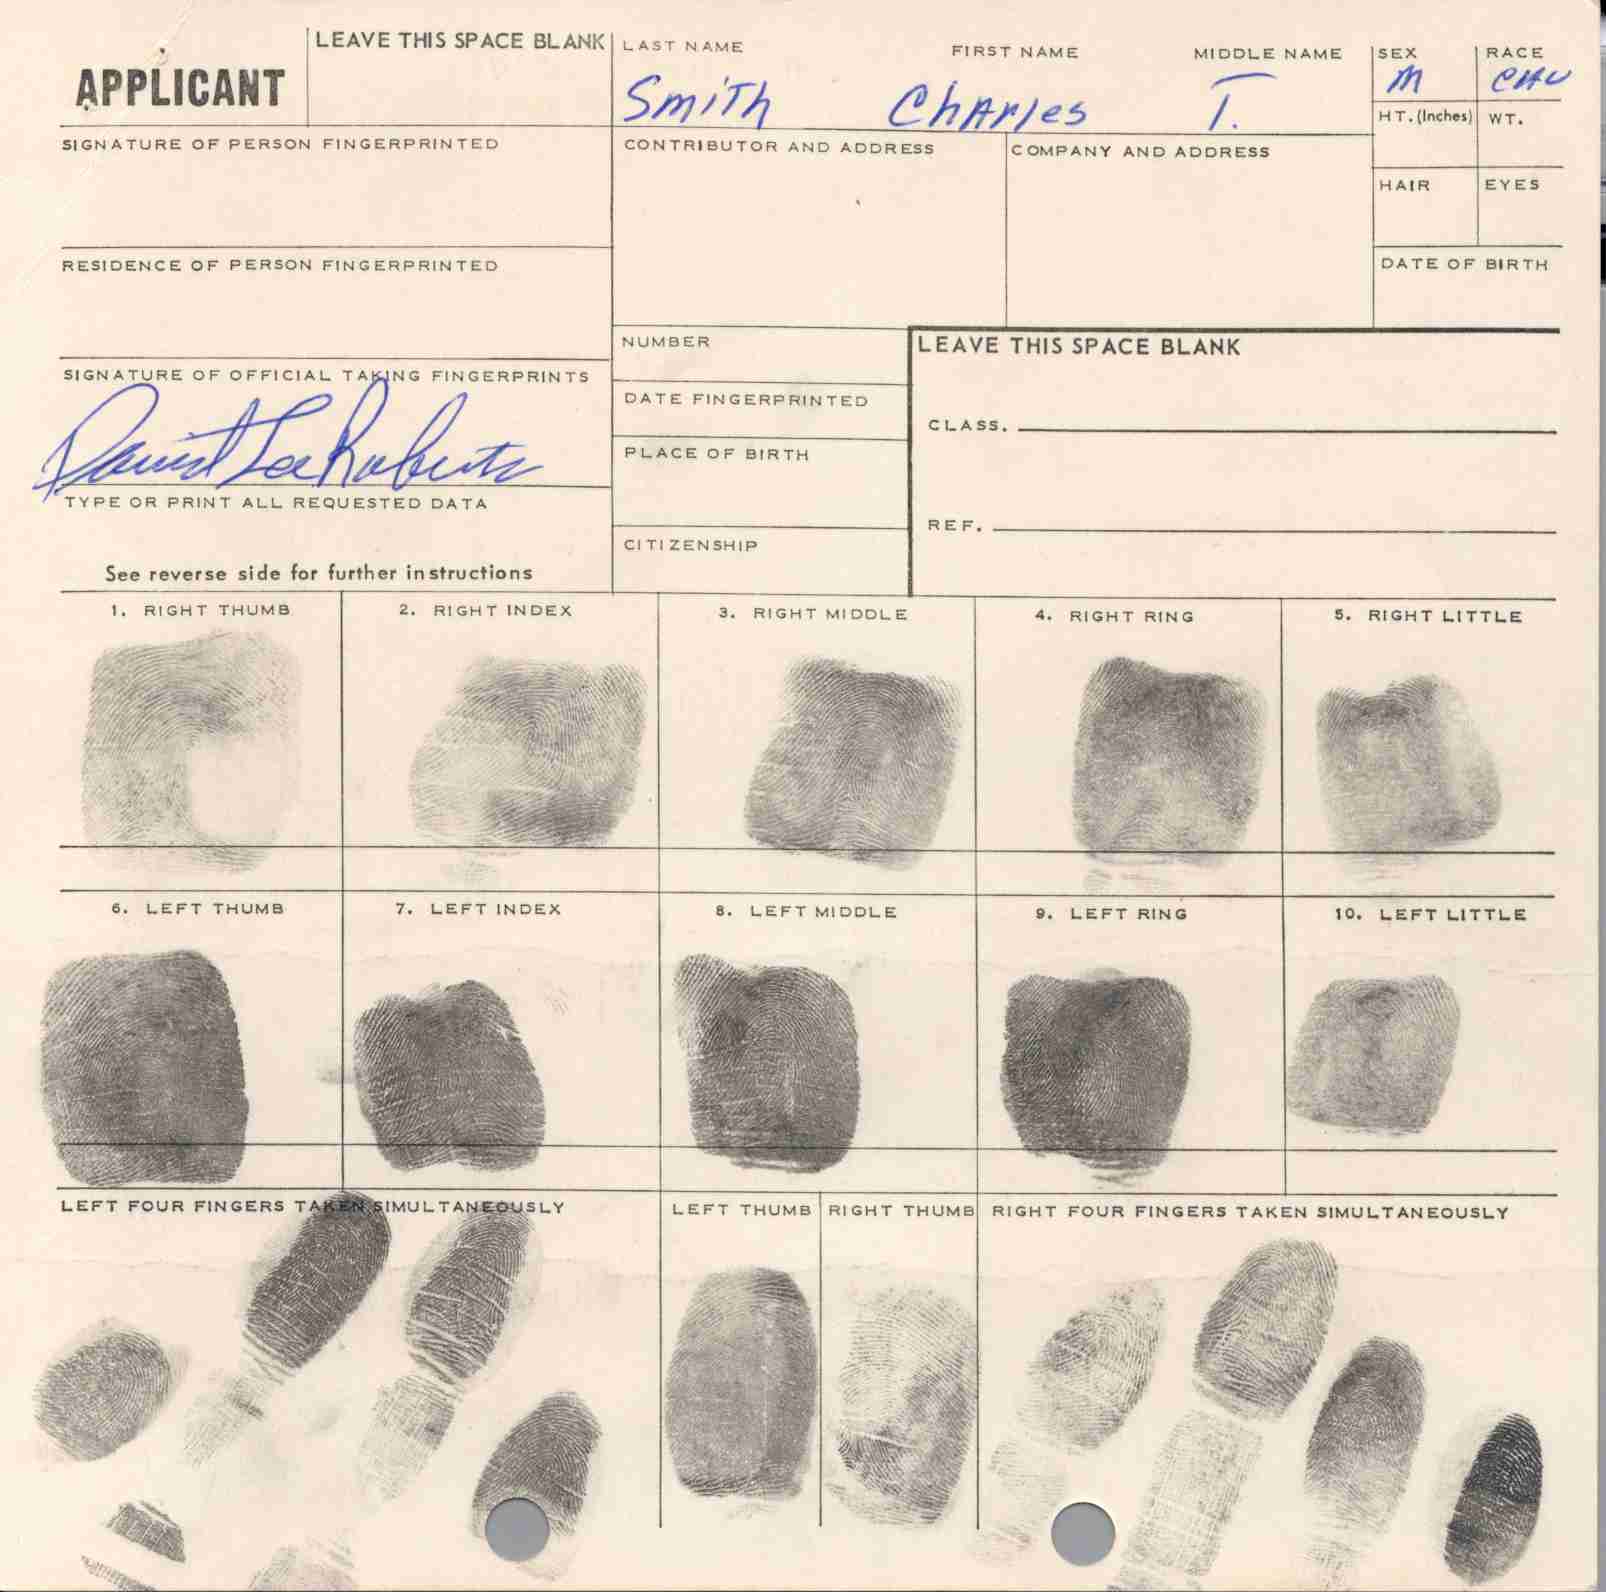 APPLICANT
LEAVE THIS SPACE BLANK
LAST NAME FIRST NAME MIDDLE NAME
Smith Charles T.
SEX
M
RACE
CAU
HT. (Inches) WT.
HAIR EYES
DATE OF BIRTH
SIGNATURE OF PERSON FINGERPRINTED
CONTRIBUTOR AND ADDRESS
COMPANY AND ADDRESS
RESIDENCE OF PERSON FINGERPRINTED
SIGNATURE OF OFFICIAL TAKING FINGERPRINTS
David Lee Roberts
TYPE OR PRINT ALL REQUESTED DATA
See reverse side for further instructions
NUMBER
DATE FINGERPRINTED
PLACE OF BIRTH
CITIZENSHIP
LEAVE THIS SPACE BLANK
CLASS.
REF.
1. RIGHT THUMB
2. RIGHT INDEX
3. RIGHT MIDDLE
4. RIGHT RING
5. RIGHT LITTLE
6. LEFT THUMB
7. LEFT INDEX
8. LEFT MIDDLE
9. LEFT RING
10. LEFT LITTLE
LEFT FOUR FINGERS TAKEN SIMULTANEOUSLY
LEFT THUMB
RIGHT THUMB
RIGHT FOUR FINGERS TAKEN SIMULTANEOUSLY